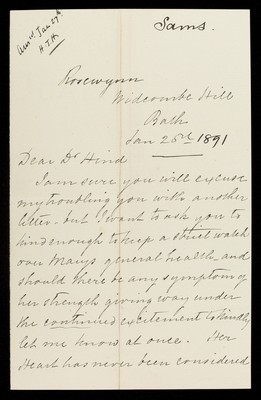 Sams.
Ansd. Jan 27th
H.T.H.
Rosewynn
Widcombe Hill
Bath
Jan 26th 1891
Dear Dr Hind
I am sure you will excuse
my troubling you with another
letter - but I want to ask you to
kind enough to keep a strict watch
over Mary's general health and
should there be any symptom of
her strength giving way under
the continued excitement to kindly
let me know at once. Her
Heart has never been considered